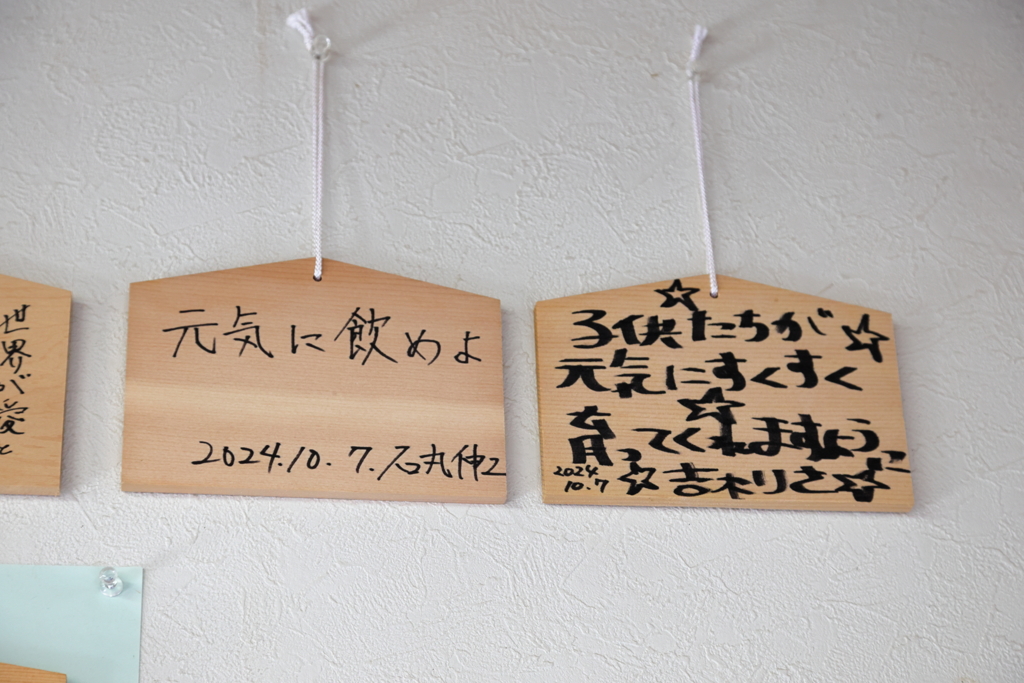 世界が愛と
元気に飲めよ
2024.10.7.石丸伸二
子供たちが
元気にすくすく
育ってくれますように
2024
10.7
☆吉木りさ☆